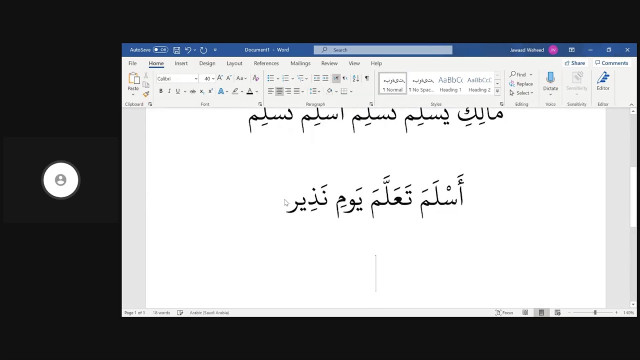 AutoSave
Document1 - Word
Search
Jawaad Waheed
File Home Insert Draw Design Layout References Mailings Review View Help
Share Comments
Paste
Calibri 40
Find
Replace
Editing
Dictate
Sensitivity
Editor
AaBbCc AaBbCc
Normal No Spac... Heading 1 Heading 2
Clipboard Font Paragraph Styles Editing Voice Sensitivity Editor
مَالِكِ يُسْلِم تُسْلِم أُسْلِم نُسْلِم
أَسْلَمَ تَعَلَّمَ يَومِ نَذِير
Page 1 of 1 Arabic (Saudi Arabia) Focus